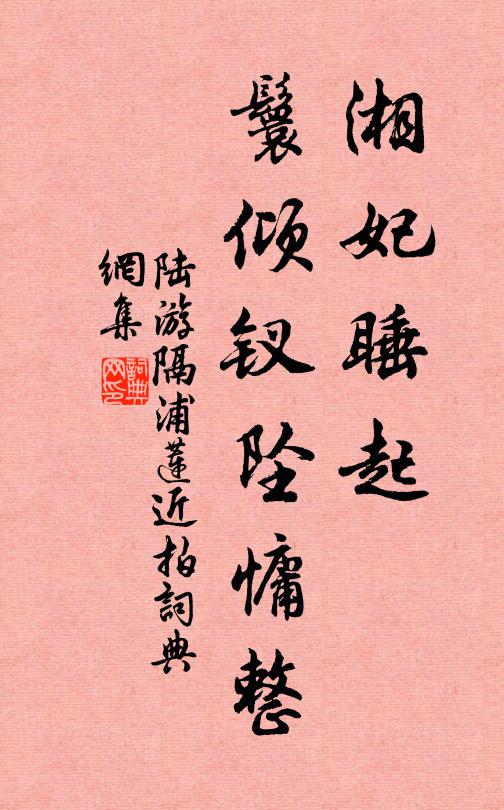 湘妃睡起
鬟倾钗坠慵整
陆游隔浦莲近拍词典
網集
詞典网印